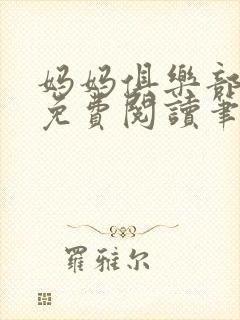 妈妈俱樂部
免費閱讀筆
羅雅尔